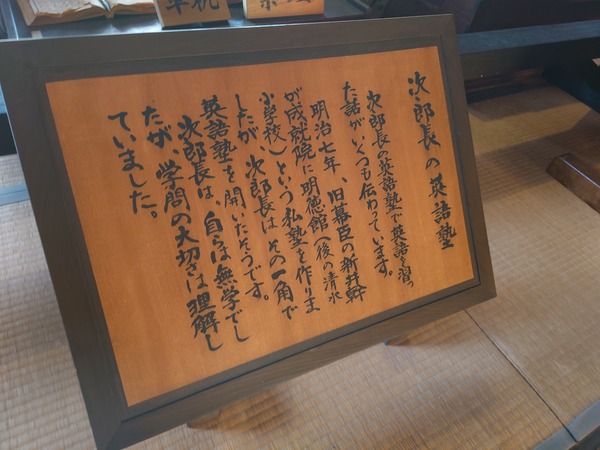 次郎長の英語塾
次郎長の英語塾で英語を習っ
た話がいくつも伝わっています。
明治七年、旧幕臣の新井幹
が成就院に明徳館(後の清水
小学校)という私塾を作りま
したが、次郎長はその一角で
英語塾を開いたそうです。
次郎長は、自らは無学でし
たが、学問の大切さは理解し
ていました。